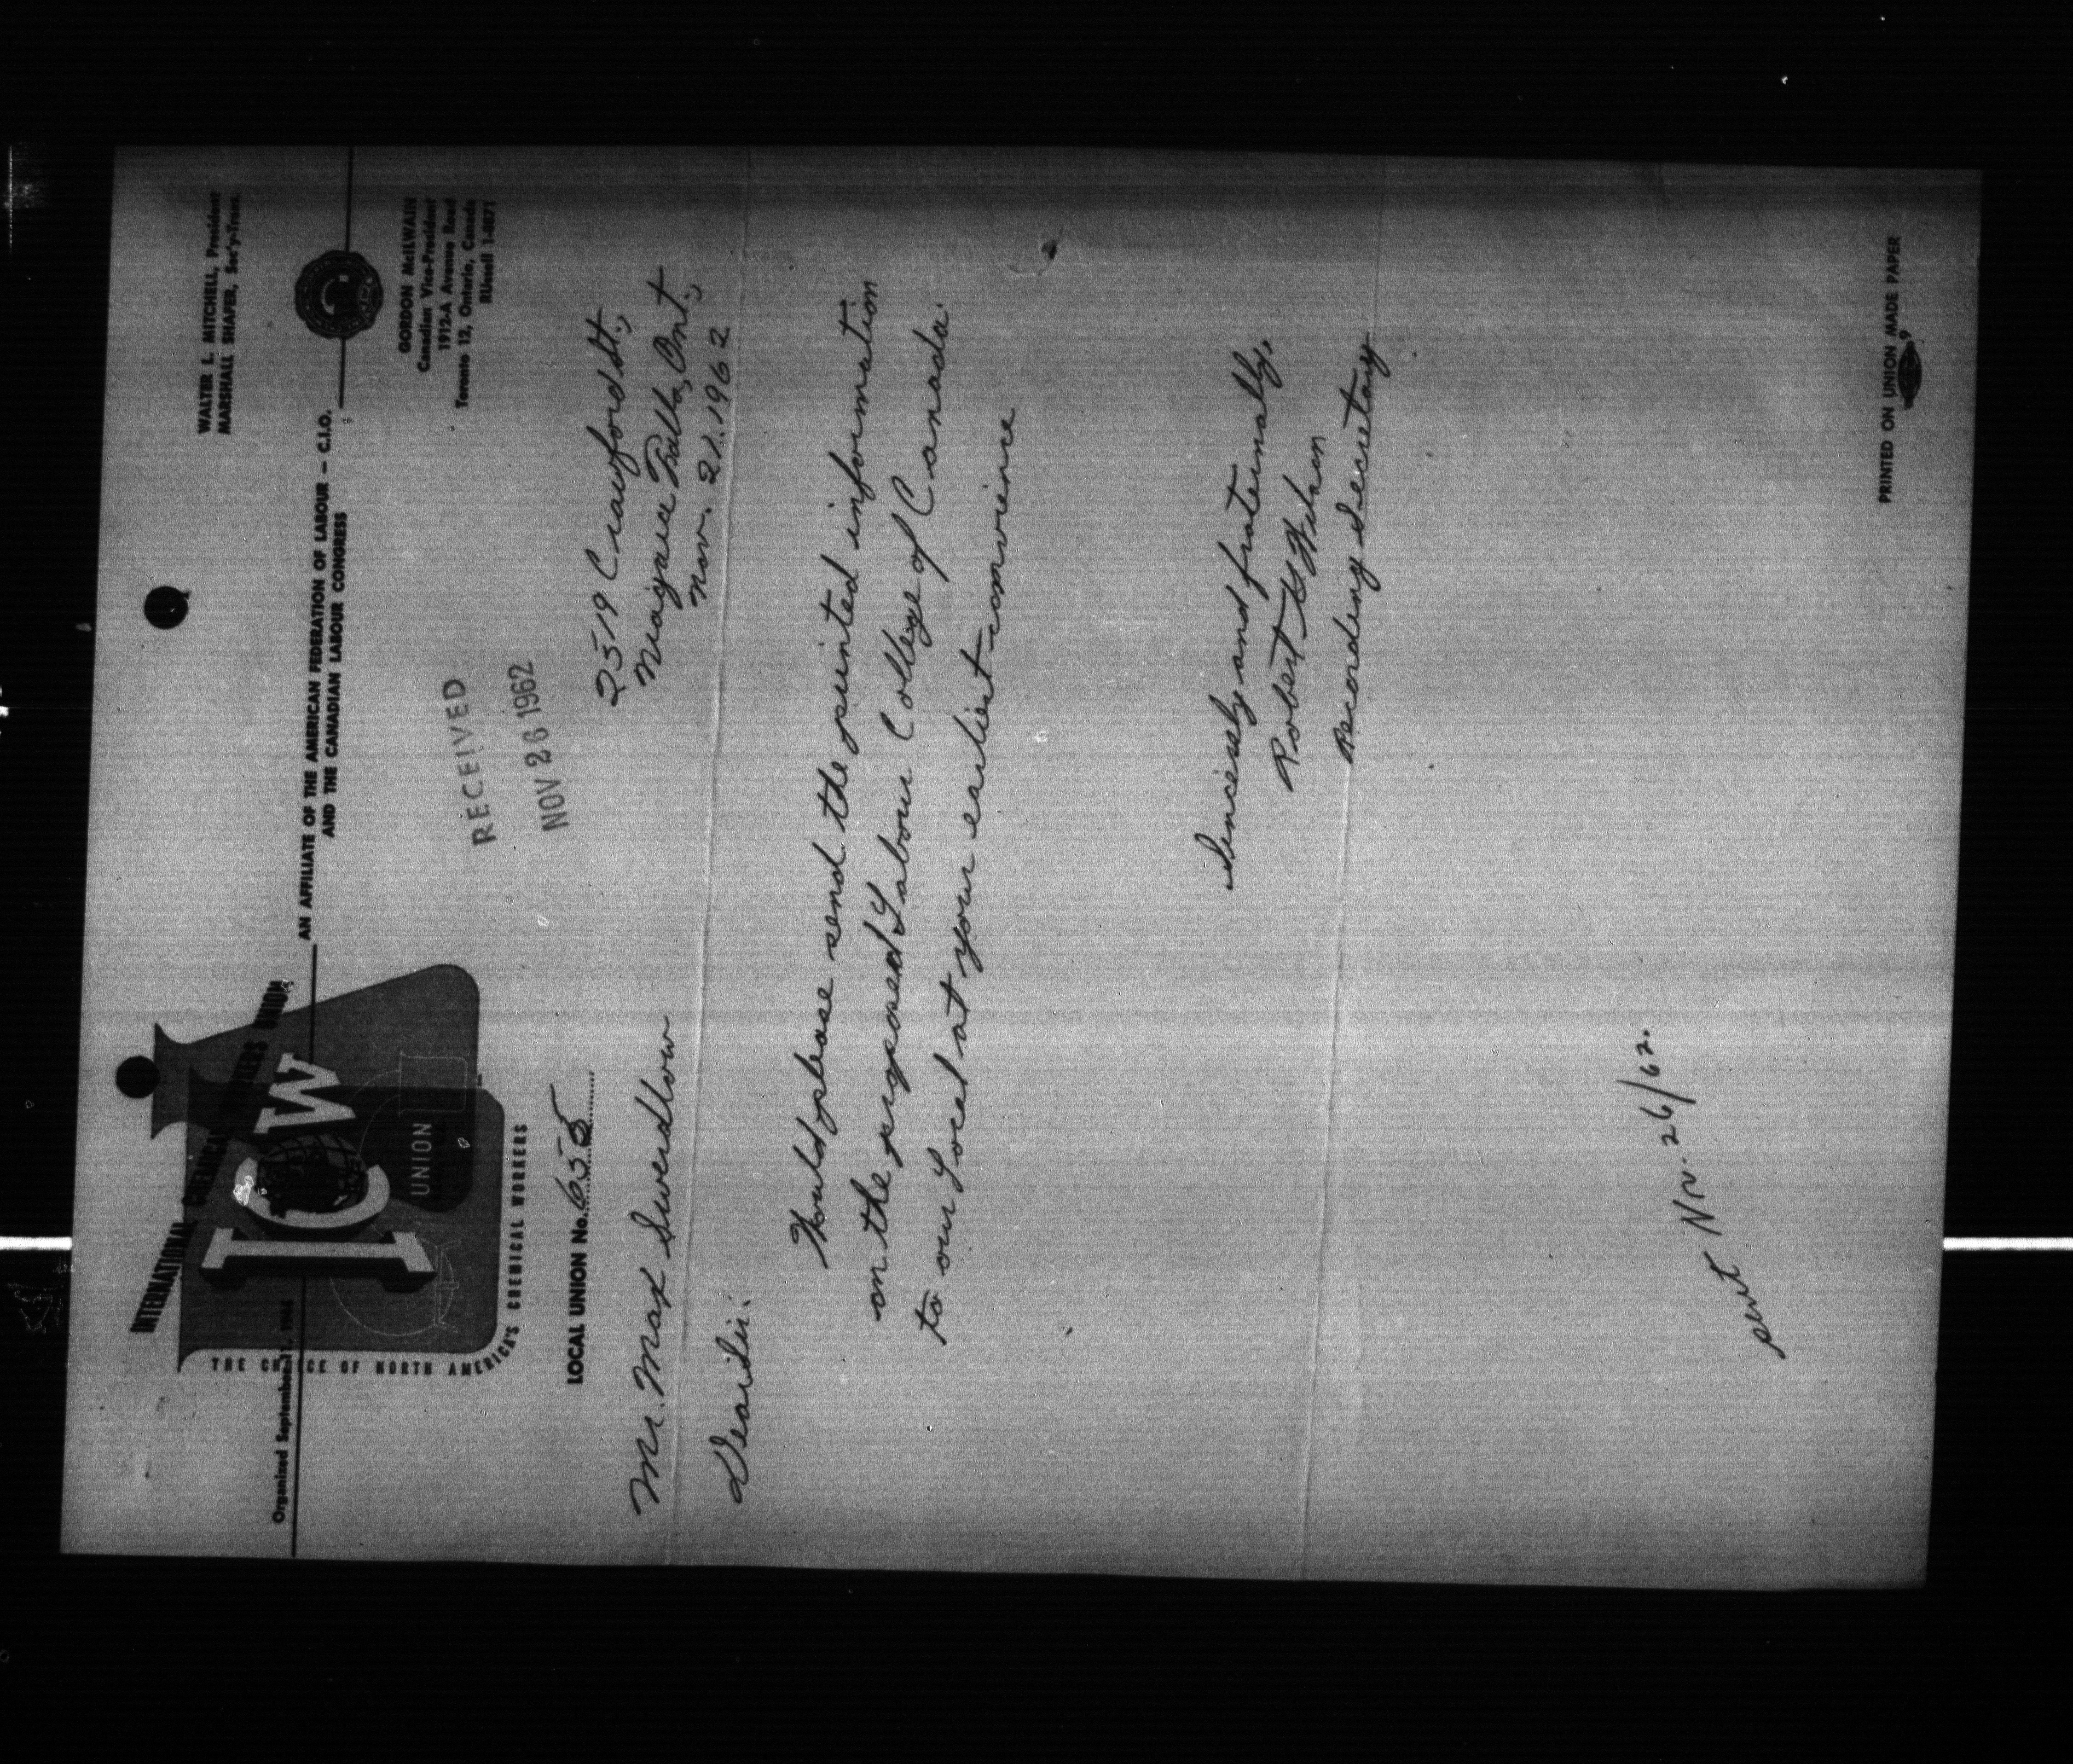 WALTER L. MITCHELL, President
MARSHALL SHAFER, Sec'y-Treas.
INTERNATIONAL CHEMICAL WORKERS UNION
Organized September 11, 1944
AN AFFILIATE OF THE AMERICAN FEDERATION OF LABOUR — C.I.O.
AND THE CANADIAN LABOUR CONGRESS
ICW
UNION
THE CHOICE OF NORTH AMERICA'S CHEMICAL WORKERS
GORDON McILWAIN
Canadian Vice-President
1912-A Avenue Road
Toronto 12, Ontario, Canada
RUssell 1-0871
RECEIVED
NOV 26 1962
LOCAL UNION No. 655
2519 Crawford St.,
Niagara Falls, Ont.,
Nov. 21. 1962
Mr. Max Swerdlow
Dear Sir:
Would please send the printed information
on the proposed Labour College of Canada
to our Local at your earliest convience
Sincerely and fraternally,
Robert Wilson
Recording Secretary
sent Nv. 26/62.
PRINTED ON UNION MADE PAPER
9